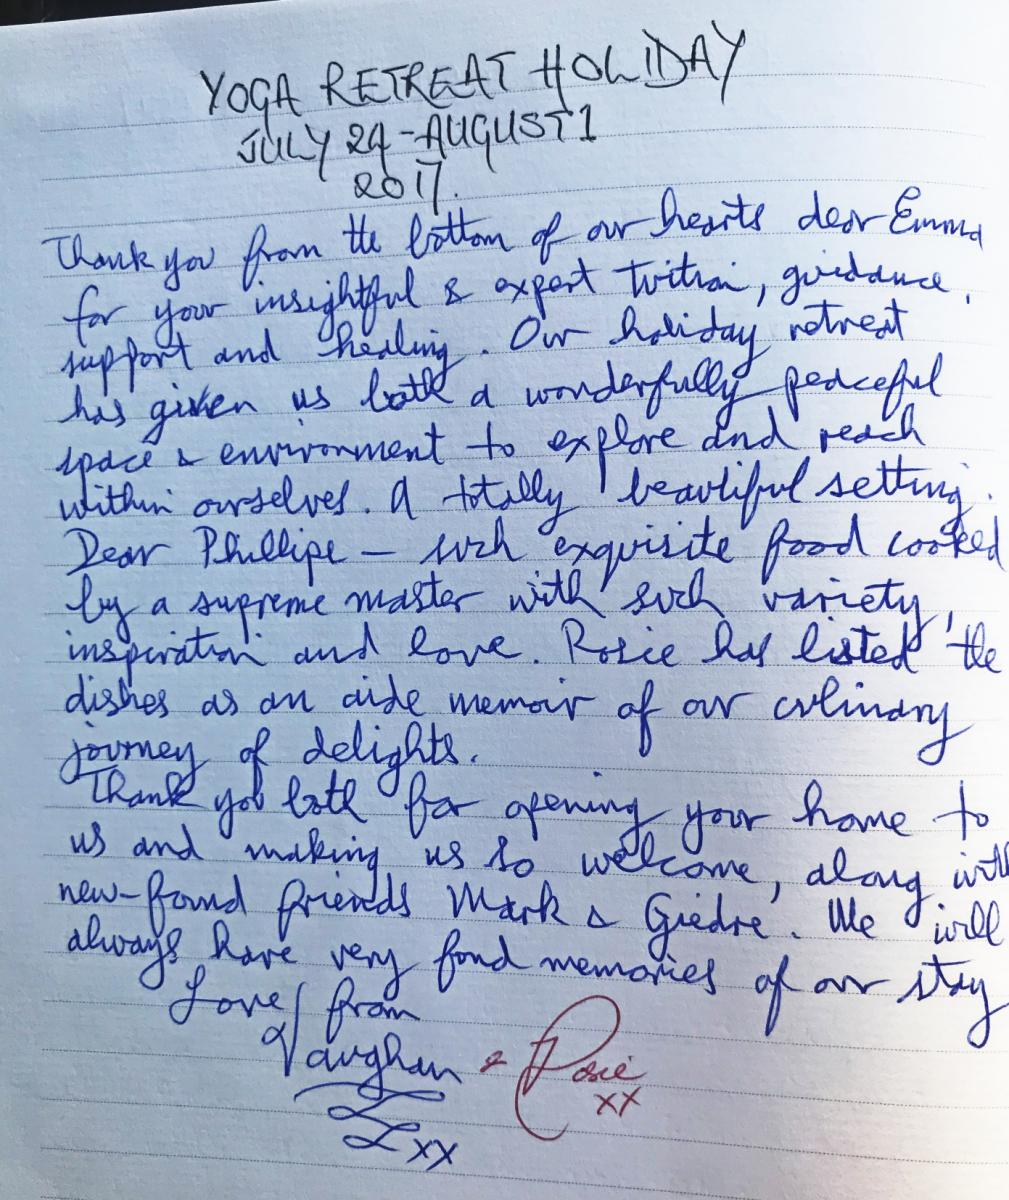 YOGA RETREAT HOLIDAY
JULY 24 - AUGUST 1
2017.
Thank you from the bottom of our hearts dear Emma
for your insightful & expert tuition, guidance,
support and healing. Our holiday retreat
has given us both a wonderfully peaceful
space & environment to explore and reach
within ourselves. A totally beautiful setting.
Dear Phillipe – such exquisite food cooked
by a supreme master with such variety,
inspiration and love. Rosie has listed the
dishes as an aide memoir of our culinary
journey of delights.
Thank you both for opening your home to
us and making us so welcome, along with
new-found friends Mark & Giedre. We will
always have very fond memories of our stay
Love from
Vaughan & Rosie
xx
xx